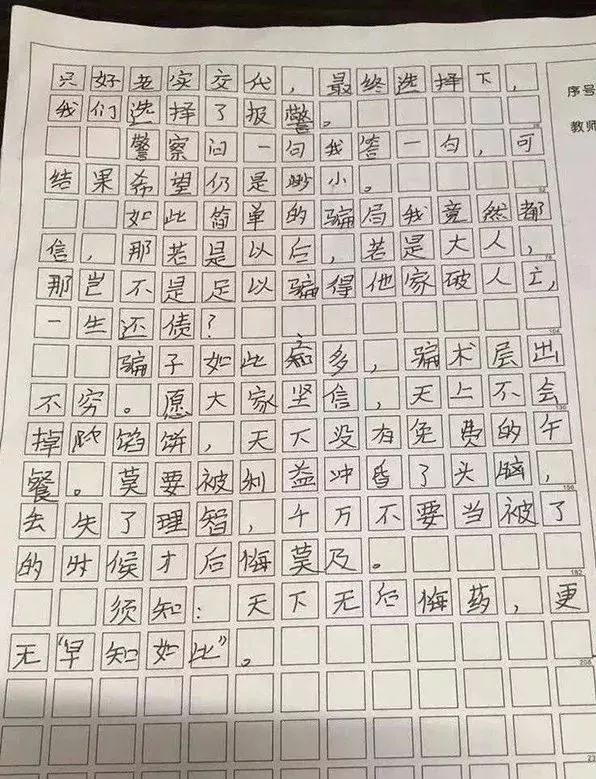 只好老实交代，最终选择下，
我们选择了报警。
警察问一句我答一句，可
结果希望仍是渺小。
如此简单的骗局我竟然都
信，那若是以后，若是大人，
那岂不是足以骗得他家破人亡，
一生还债？
骗子如此多，骗术层出
不穷。愿大家坚信，天上不会
掉馅饼，天下没有免费的午
餐。莫要被利益冲昏了头脑，
去失了理智，千万不要当被了
的时候才后悔莫及。
须知：天下无后悔药，更
无“早知如此”。
序号
教师
26
52
78
104
130
156
182
208